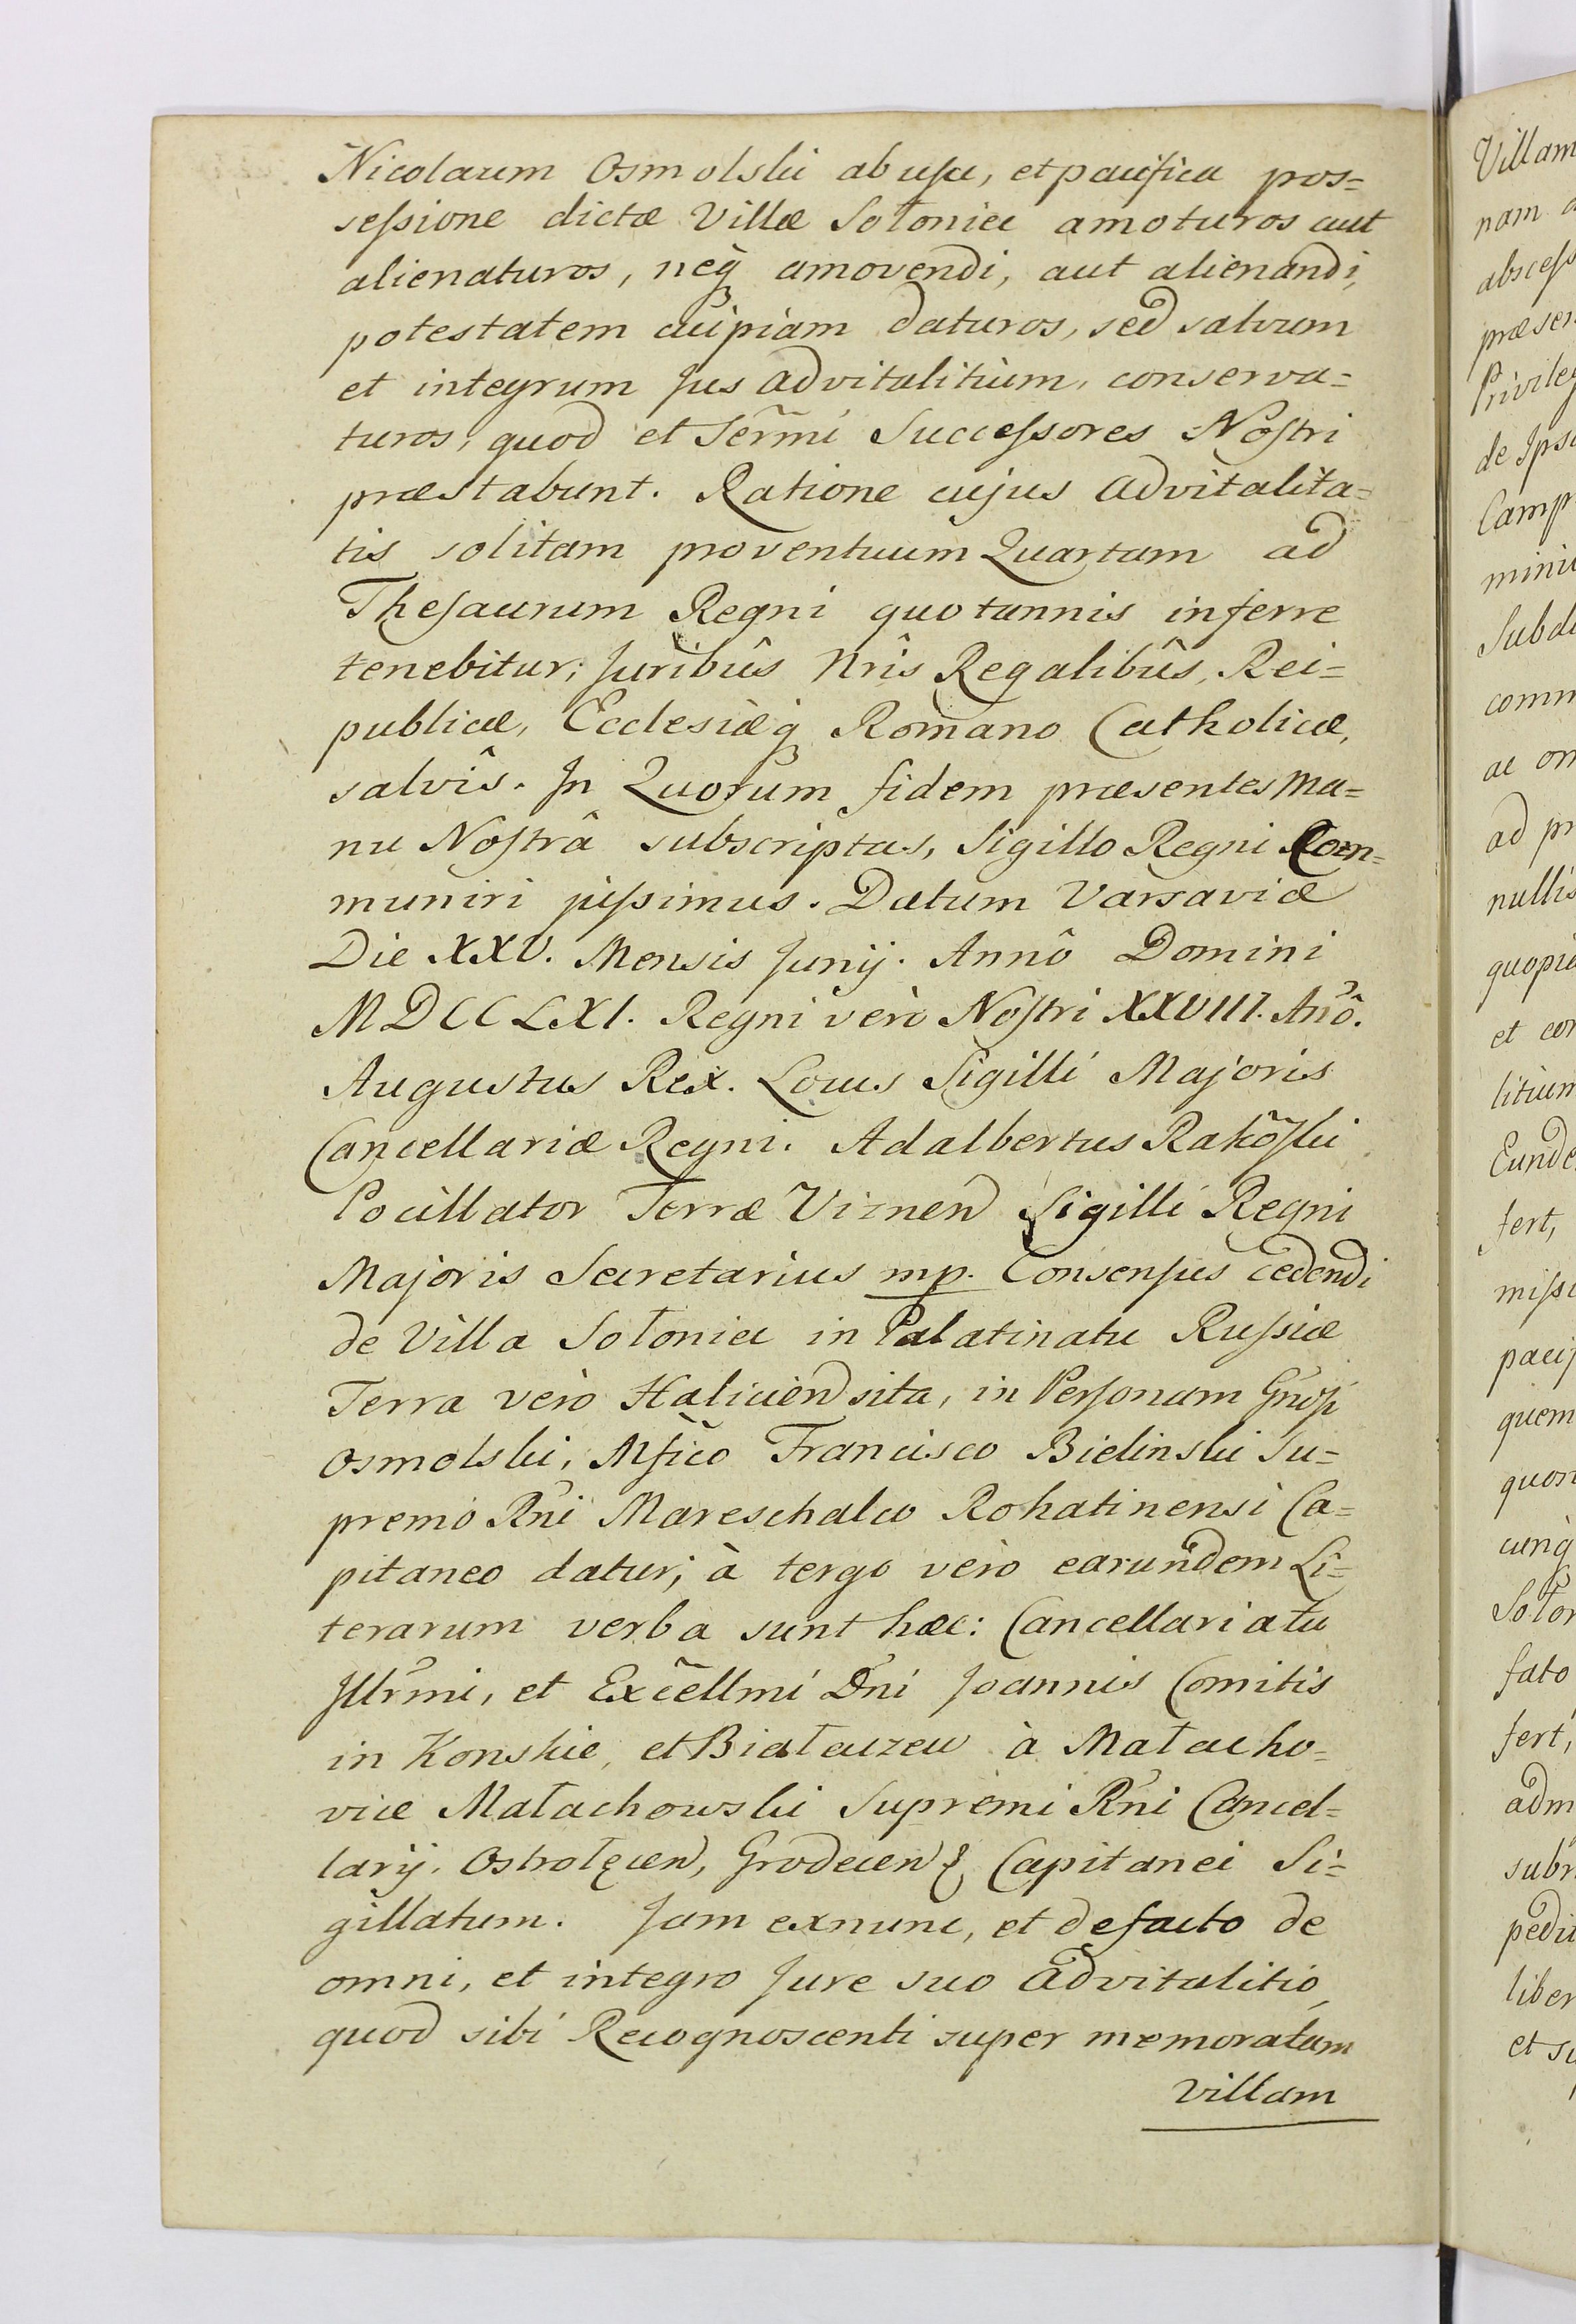 Nicolaum Osmolski ab usu, et pacifica pos=
sessione dictæ Villæ Sołonica amoturos aut
alienaturos, neq amovendi, aut alienandi,
potestatem cuipiam daturos, sed salvum
et integrum Jus advitalitium, conserva=
turos, quod et Serm̃i Successores Nostri
præstabunt. Ratione cujus advitalita=
tis solitam proventuum Quartam ad
Thesaurum Regni quotannis inferre
tenebitur; Juribûs Nrîs Regalibûs, Rei=
publicæ, Ecclesiæq Romano Catholicæ,
salvîs. In Quorum fidem præsentes Ma=
nu Nostrâ subscriptas, Sigillo Regni Com=
muniri jussimus. Datum Varsaviæ
Die XXV. Mensis Junij. Annô Domini
MDCCLXI. Regni verò Nostri XXVIII. Anõ.
Augustus Rex. Locus Sigilli Majoris
Cancellariæ Regni. Adalbertus Rakôski
Pocillator Terræ Viznen Sigilli Regni
Majoris Secretarius mp. Consensus cedendi
de Villa Sołonica in Palatinatu Russiæ
Terra verò Halicien sita, in Personam Gñosi
Osmolski, Mfico Francisco Bielinski Su=
premo Rni Mareschalco Rohatinensi Ca=
pitaneo datur; à tergo verò earundem Li=
terarum verba sunt hæc: Cancellariatu
Illrm̃i, et Excellm̃i Dni Joannis Comitis
in Konskie, et Białaczew à Małacho=
vice Małachowski Supremi Rni Cancel=
larij. Ostrołęcen, Grodecen & Capitanei Si=
gillatum. Jam exnunc, et defacto de
omni, et integro Jure suo advitalitio,
quod sibi Recognoscenti super memoratam
Villam
Villam
nam
præsen
Privileg
de Ipso
Camp
Subd
comm
ac om
ad pr
nullis
et con
litium
Eunde
fert,
quem
Sołon
fato
fert,
adm
liber
et su